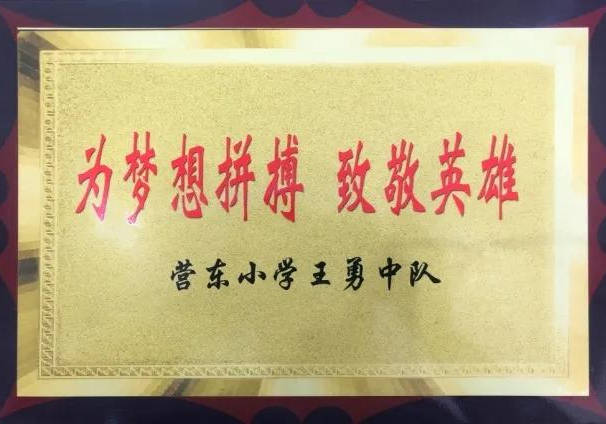 为梦想拼搏 致敬英雄
营东小学王勇中队